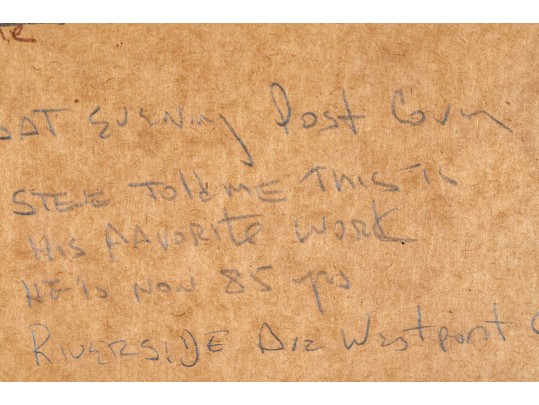 te
SAT EVENING Post Cover
STEVE Told ME THIS IS
HIS FAVORITE WORK
HE IS NOW 85 yrs
RIVERSIDE AVE Westport C